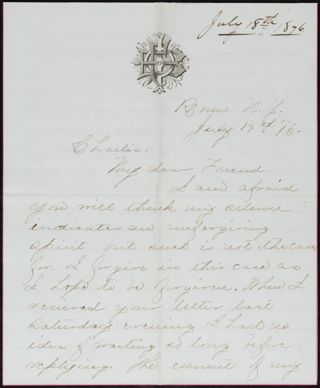 July 18th 1876.
Rome N.Y.
July 18th 76.
Charlie:
My dear Friend.
I am afraid
you will think my silence
indicates an unforgiving
spirit. but such is not the case
for I forgive in this case as
I hope to be forgiven. When I
received your letter last
Saturday evening I had no
idea of waiting so long before
replying. The current of my